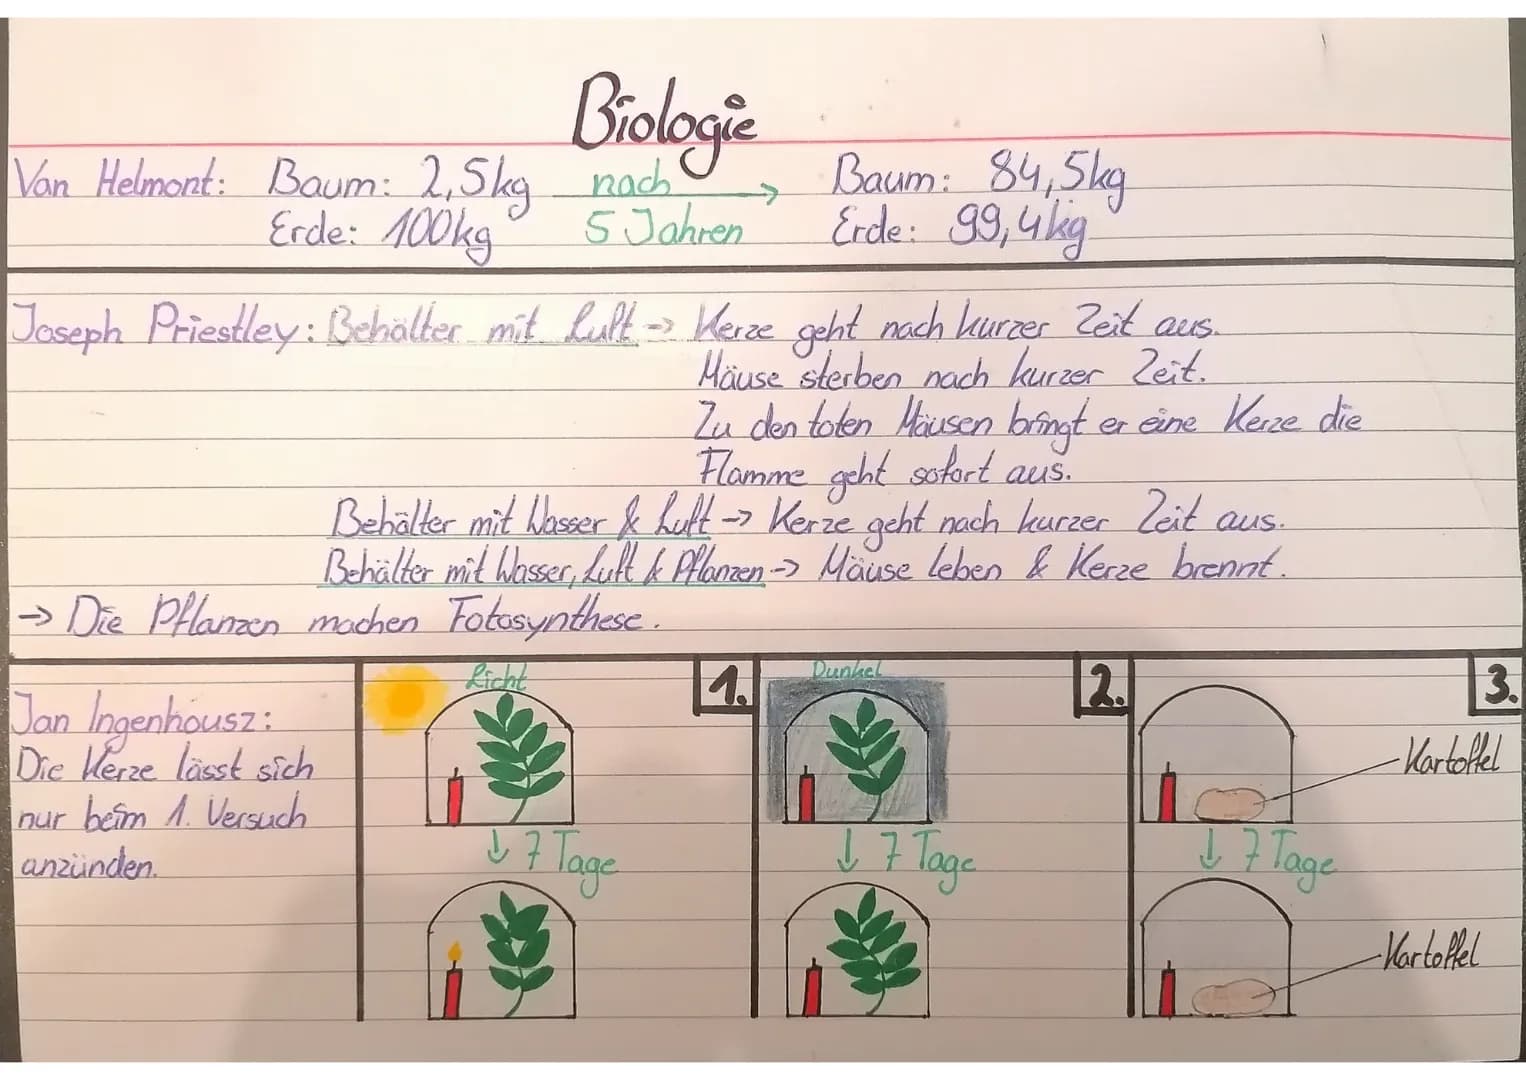 Biologie
Van Helmont: Baum: 2,5kg nach → Baum: 84,5kg
Erde: 100kg 5 Jahren Erde: 99,4kg
Joseph Priestley: Behälter mit Luft -> Kerze geht nach kurzer Zeit aus.
Mäuse sterben nach kurzer Zeit.
Zu den toten Mäusen bringt er eine Kerze die
Flamme geht sofort aus.
Behälter mit Wasser & Luft -> Kerze geht nach kurzer Zeit aus.
Behälter mit Wasser, Luft & Pflanzen -> Mäuse leben & Kerze brennt.
-> Die Pflanzen machen Fotosynthese.
Jan Ingenhousz:
Die Kerze lässt sich
nur beim 1. Versuch
anzünden.
Licht
1.
↓ 7 Tage
Dunkel
2.
↓ 7 Tage
3.
Kartoffel
↓ 7 Tage
Kartoffel